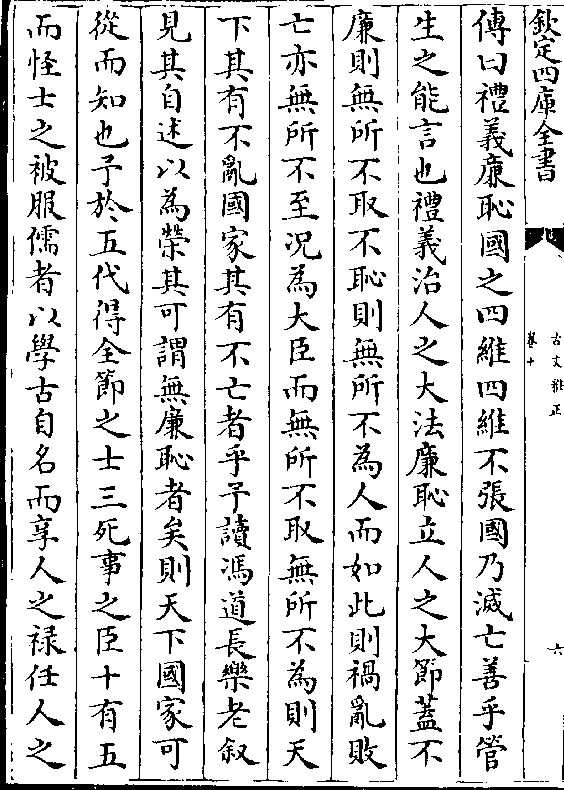 欽定四庫全書
古文雅正
卷十
六
傳曰禮義廉恥國之四維四維不張國乃滅亡善乎管
生之能言也禮義治人之大法廉恥立人之大節蓋不
廉則無所不取不恥則無所不為人而如此則禍亂敗
亡亦無所不至况為大臣而無所不取無所不為則天
下其有不亂國家其有不亡者乎予讀馮道長樂老叙
見其自述以為榮其可謂無廉恥者矣則天下國家可
從而知也予於五代得全節之士三死事之臣十有五
而怪士之被服儒者以學古自名而享人之祿任人之